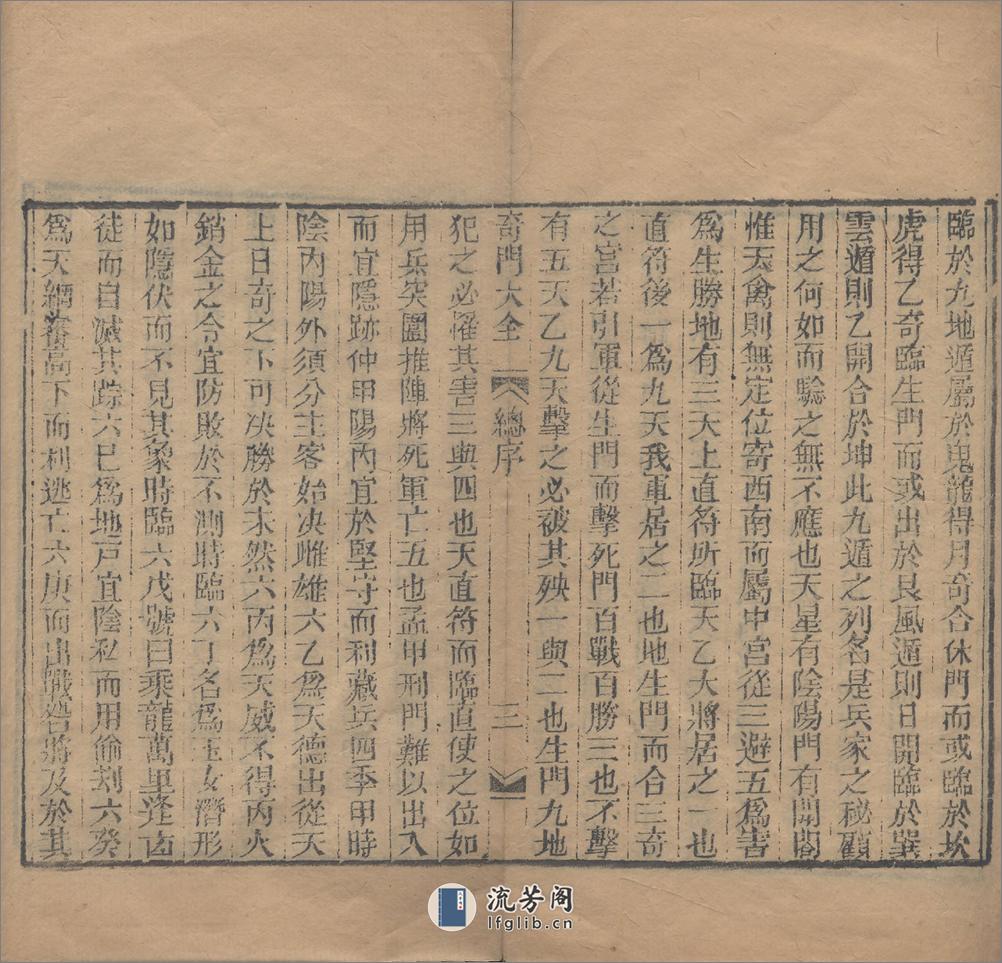 臨於九地遁屬於鬼龍得月奇合休門而或臨於坎
虎得乙奇臨生門而或出於艮風遁則日開臨於巽
雲遁則乙開合於坤此九遁之列名是兵家之秘顧
用之何如而驗之無不應也天星有陰陽門有開闔
惟天禽則無定位寄西南而屬中宮從三避五爲害
爲生勝地有三天上直符所臨天乙大將居之一也
直符後一爲九天我軍居之二也地生門而合三奇
之宮若引軍從生門而擊死門百戰百勝三也不擊
有五天乙九天擊之必被其殃一與二也生門九地
奇門大全 總序 三
犯之必懼其害三與四也天直符而臨直使之位如
用兵突圍推陣將死軍亡五也孟甲刑門難以出入
而宜隱跡仲甲陽內宜於堅守而利藏兵四季甲時
陰內陽外須分主客始决雌雄六乙爲天德出從天
上日奇之下可决勝於未然六丙爲天威不得丙火
銷金之令宜防敗於不測時臨六丁名爲玉女潛形
如隱伏而不見其象時臨六戊號曰乘龍萬里逢凶
徒而自滅其踪六巳爲地戸宜陰私而用偷刼六癸
爲天網審高下而利逃亡六庚而出戰者將及於其
流芳阁
lfglib.cn